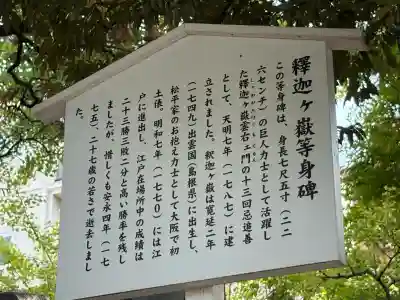 釋迦ヶ嶽等身碑
この等身碑は、身長七尺五寸（二二
六センチ）の巨人力士として活躍し
た釋迦ヶ嶽雲右ェ門の十三回忌追善
として、天明七年（一七八七）に建
立されました。釈迦ヶ嶽は寛延二年
（一七四九）出雲国（島根県）に出生し、
松平家のお抱え力士として大阪で初
土俵、明和七年（一七七〇）には江
戸に進出し、江戸在場所中の成績は
二十三勝三敗二分と高い勝率を残し
ましたが、惜しくも安永四年（一七
七五）、二十七歳の若さで逝去しまし
た。